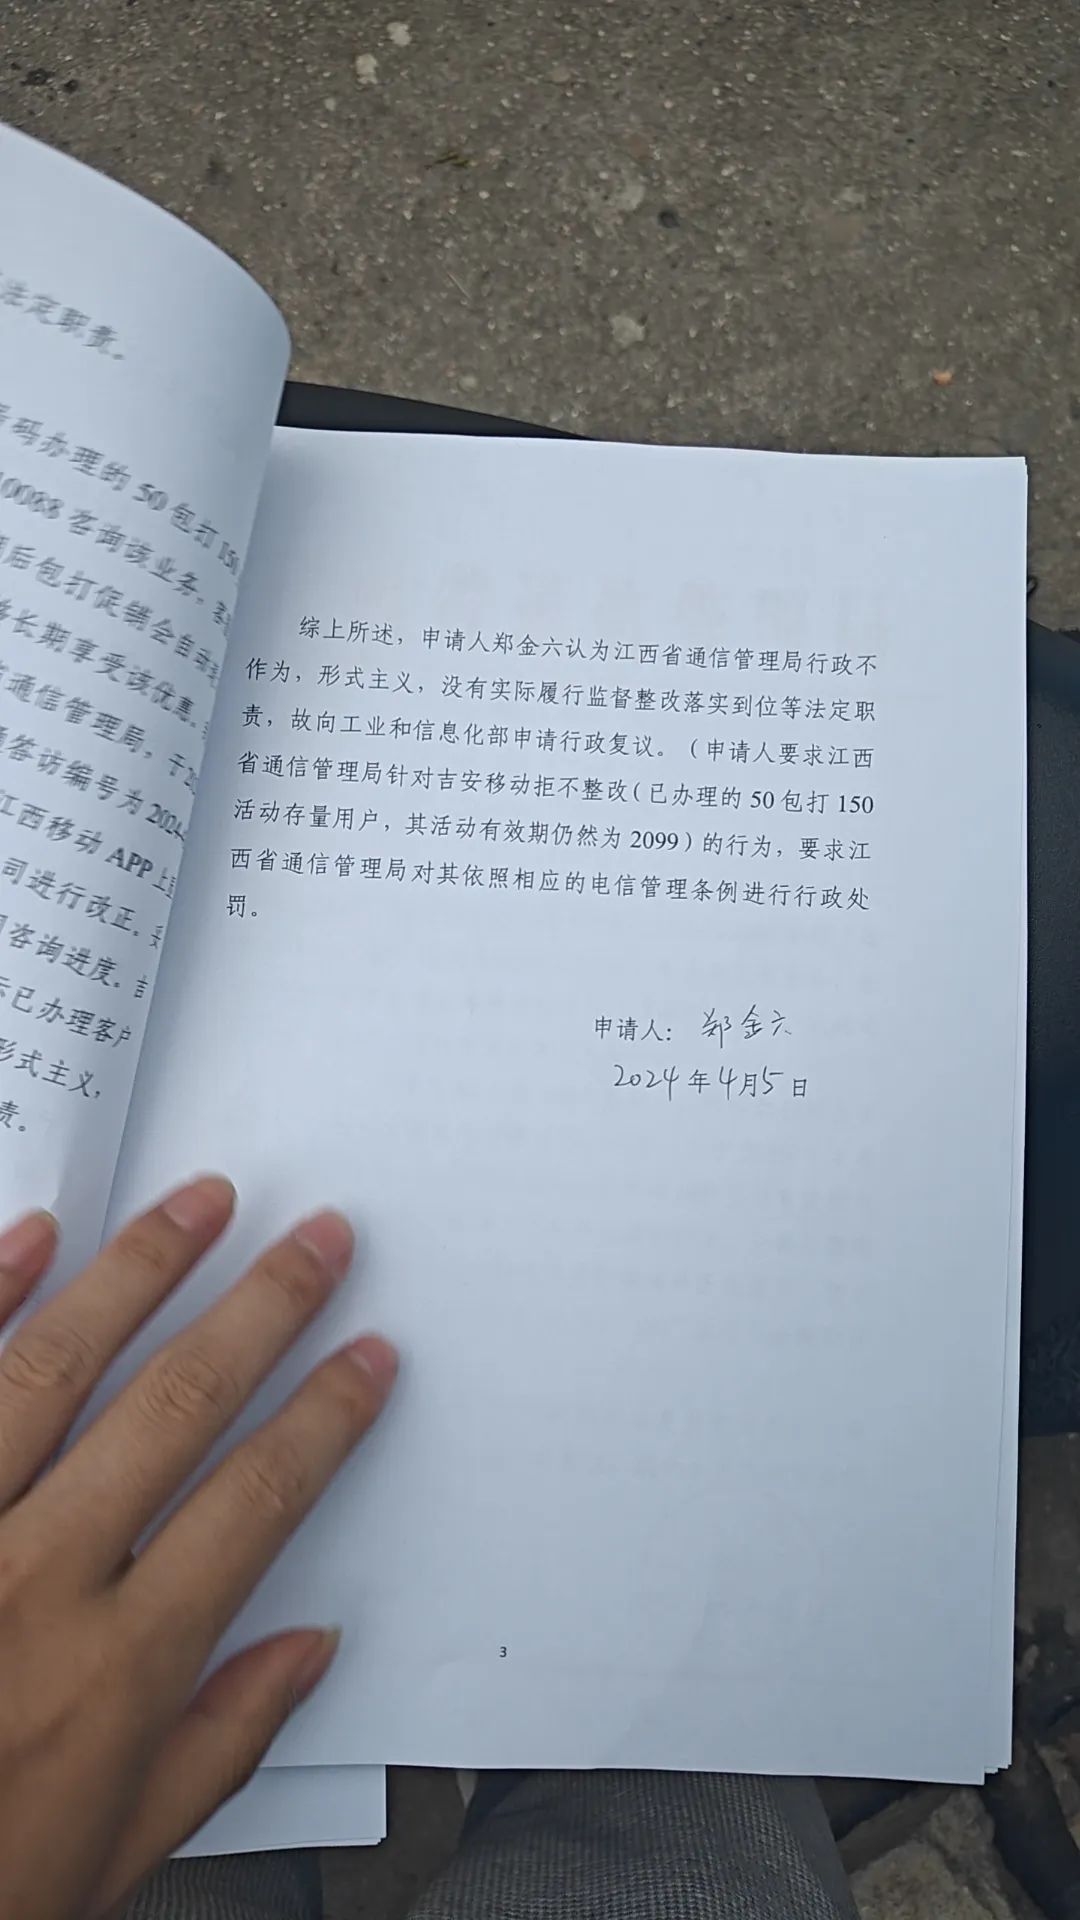 法定职责。
号码办理的 50 包打 150
10088 咨询该业务，
期后包打促销会自动
够长期享受该优惠。
通信管理局，于20
客访编号为 2024
江西移动 APP 上
司进行改正。
咨询进度。吉
示已办理客户
形式主义，
责。
综上所述，申请人郑金六认为江西省通信管理局行政不
作为，形式主义，没有实际履行监督整改落实到位等法定职
责，故向工业和信息化部申请行政复议。（申请人要求江西
省通信管理局针对吉安移动拒不整改（已办理的 50 包打 150
活动存量用户，其活动有效期仍然为 2099）的行为，要求江
西省通信管理局对其依照相应的电信管理条例进行行政处
罚。
申请人：郑金六
2024年4月5日
3